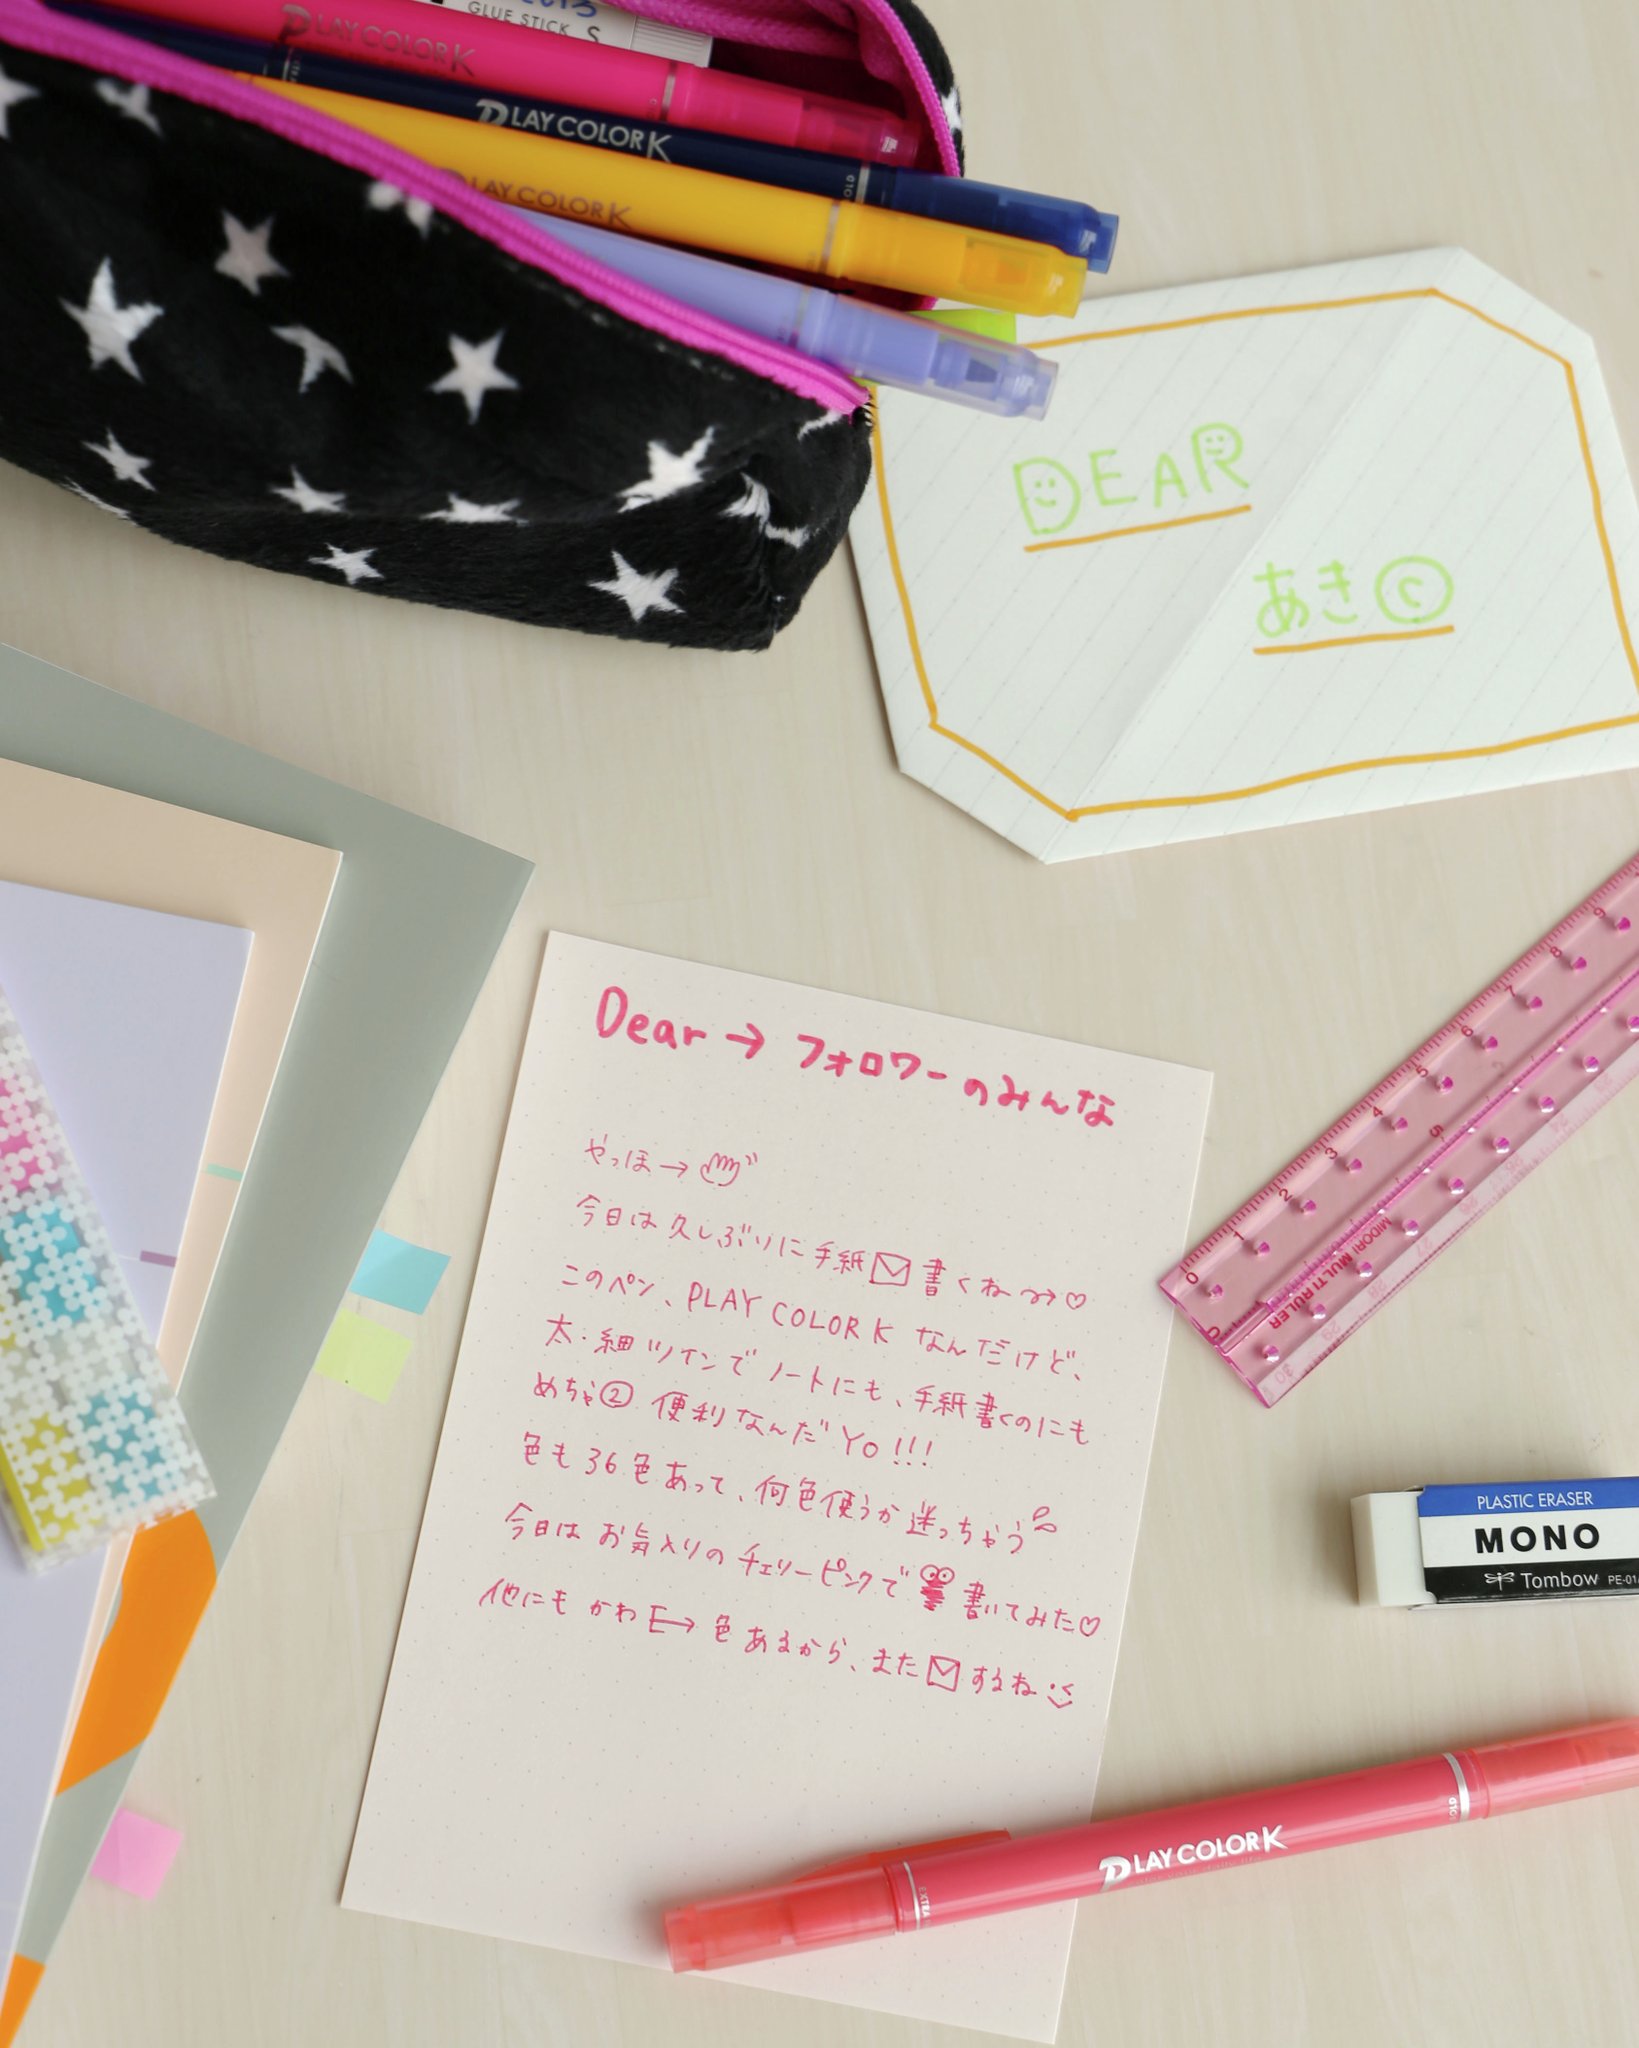 GLUE STICK S
PLAY COLOR K
PLAY COLOR K
LAY COLOR K
DEAR
あきⓒ
Dear → フォロワーのみんな
やっほ→
今日は久しぶりに手紙✉書くね〜→♡
このペン、PLAY COLOR K なんだけど、
太・細ツインでノートにも、手紙書くのにも
めちゃ② 便利なんだYO!!!
色も36色あって、何色使うか迷っちゃう
今日はお気入りのチェリーピンクで書いてみた♡
他にもかわE→色あるから、また✉するね
9
8
7
6
5
4
3
2
1
0
MIDORI MULTI RULER
30
29
28
27
PLASTIC ERASER
MONO
Tombow PE-01
PLAY COLOR K
EXTRA